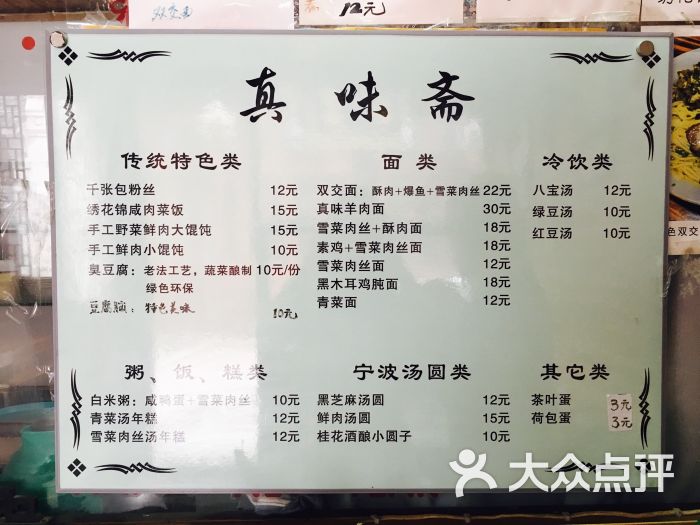 双交面
12元
真味斋
传统特色类
千张包粉丝 12元
绣花锦咸肉菜饭 15元
手工野菜鲜肉大馄饨 15元
手工鲜肉小馄饨 10元
臭豆腐：老法工艺，蔬菜酿制 10元/份
绿色环保
豆腐脑：特色美味 10元
面类
双交面：酥肉+爆鱼+雪菜肉丝 22元
真味羊肉面 30元
雪菜肉丝+酥肉面 18元
素鸡+雪菜肉丝面 18元
雪菜肉丝面 12元
黑木耳鸡肫面 18元
青菜面 12元
冷饮类
八宝汤 12元
绿豆汤 10元
红豆汤 10元
粥、饭、糕类
白米粥：咸鸭蛋+雪菜肉丝 10元
青菜汤年糕 12元
雪菜肉丝汤年糕 12元
宁波汤圆类
黑芝麻汤圆 12元
鲜肉汤圆 15元
桂花酒酿小圆子 10元
其它类
茶叶蛋 3元
荷包蛋 3元
色双交
大众点评